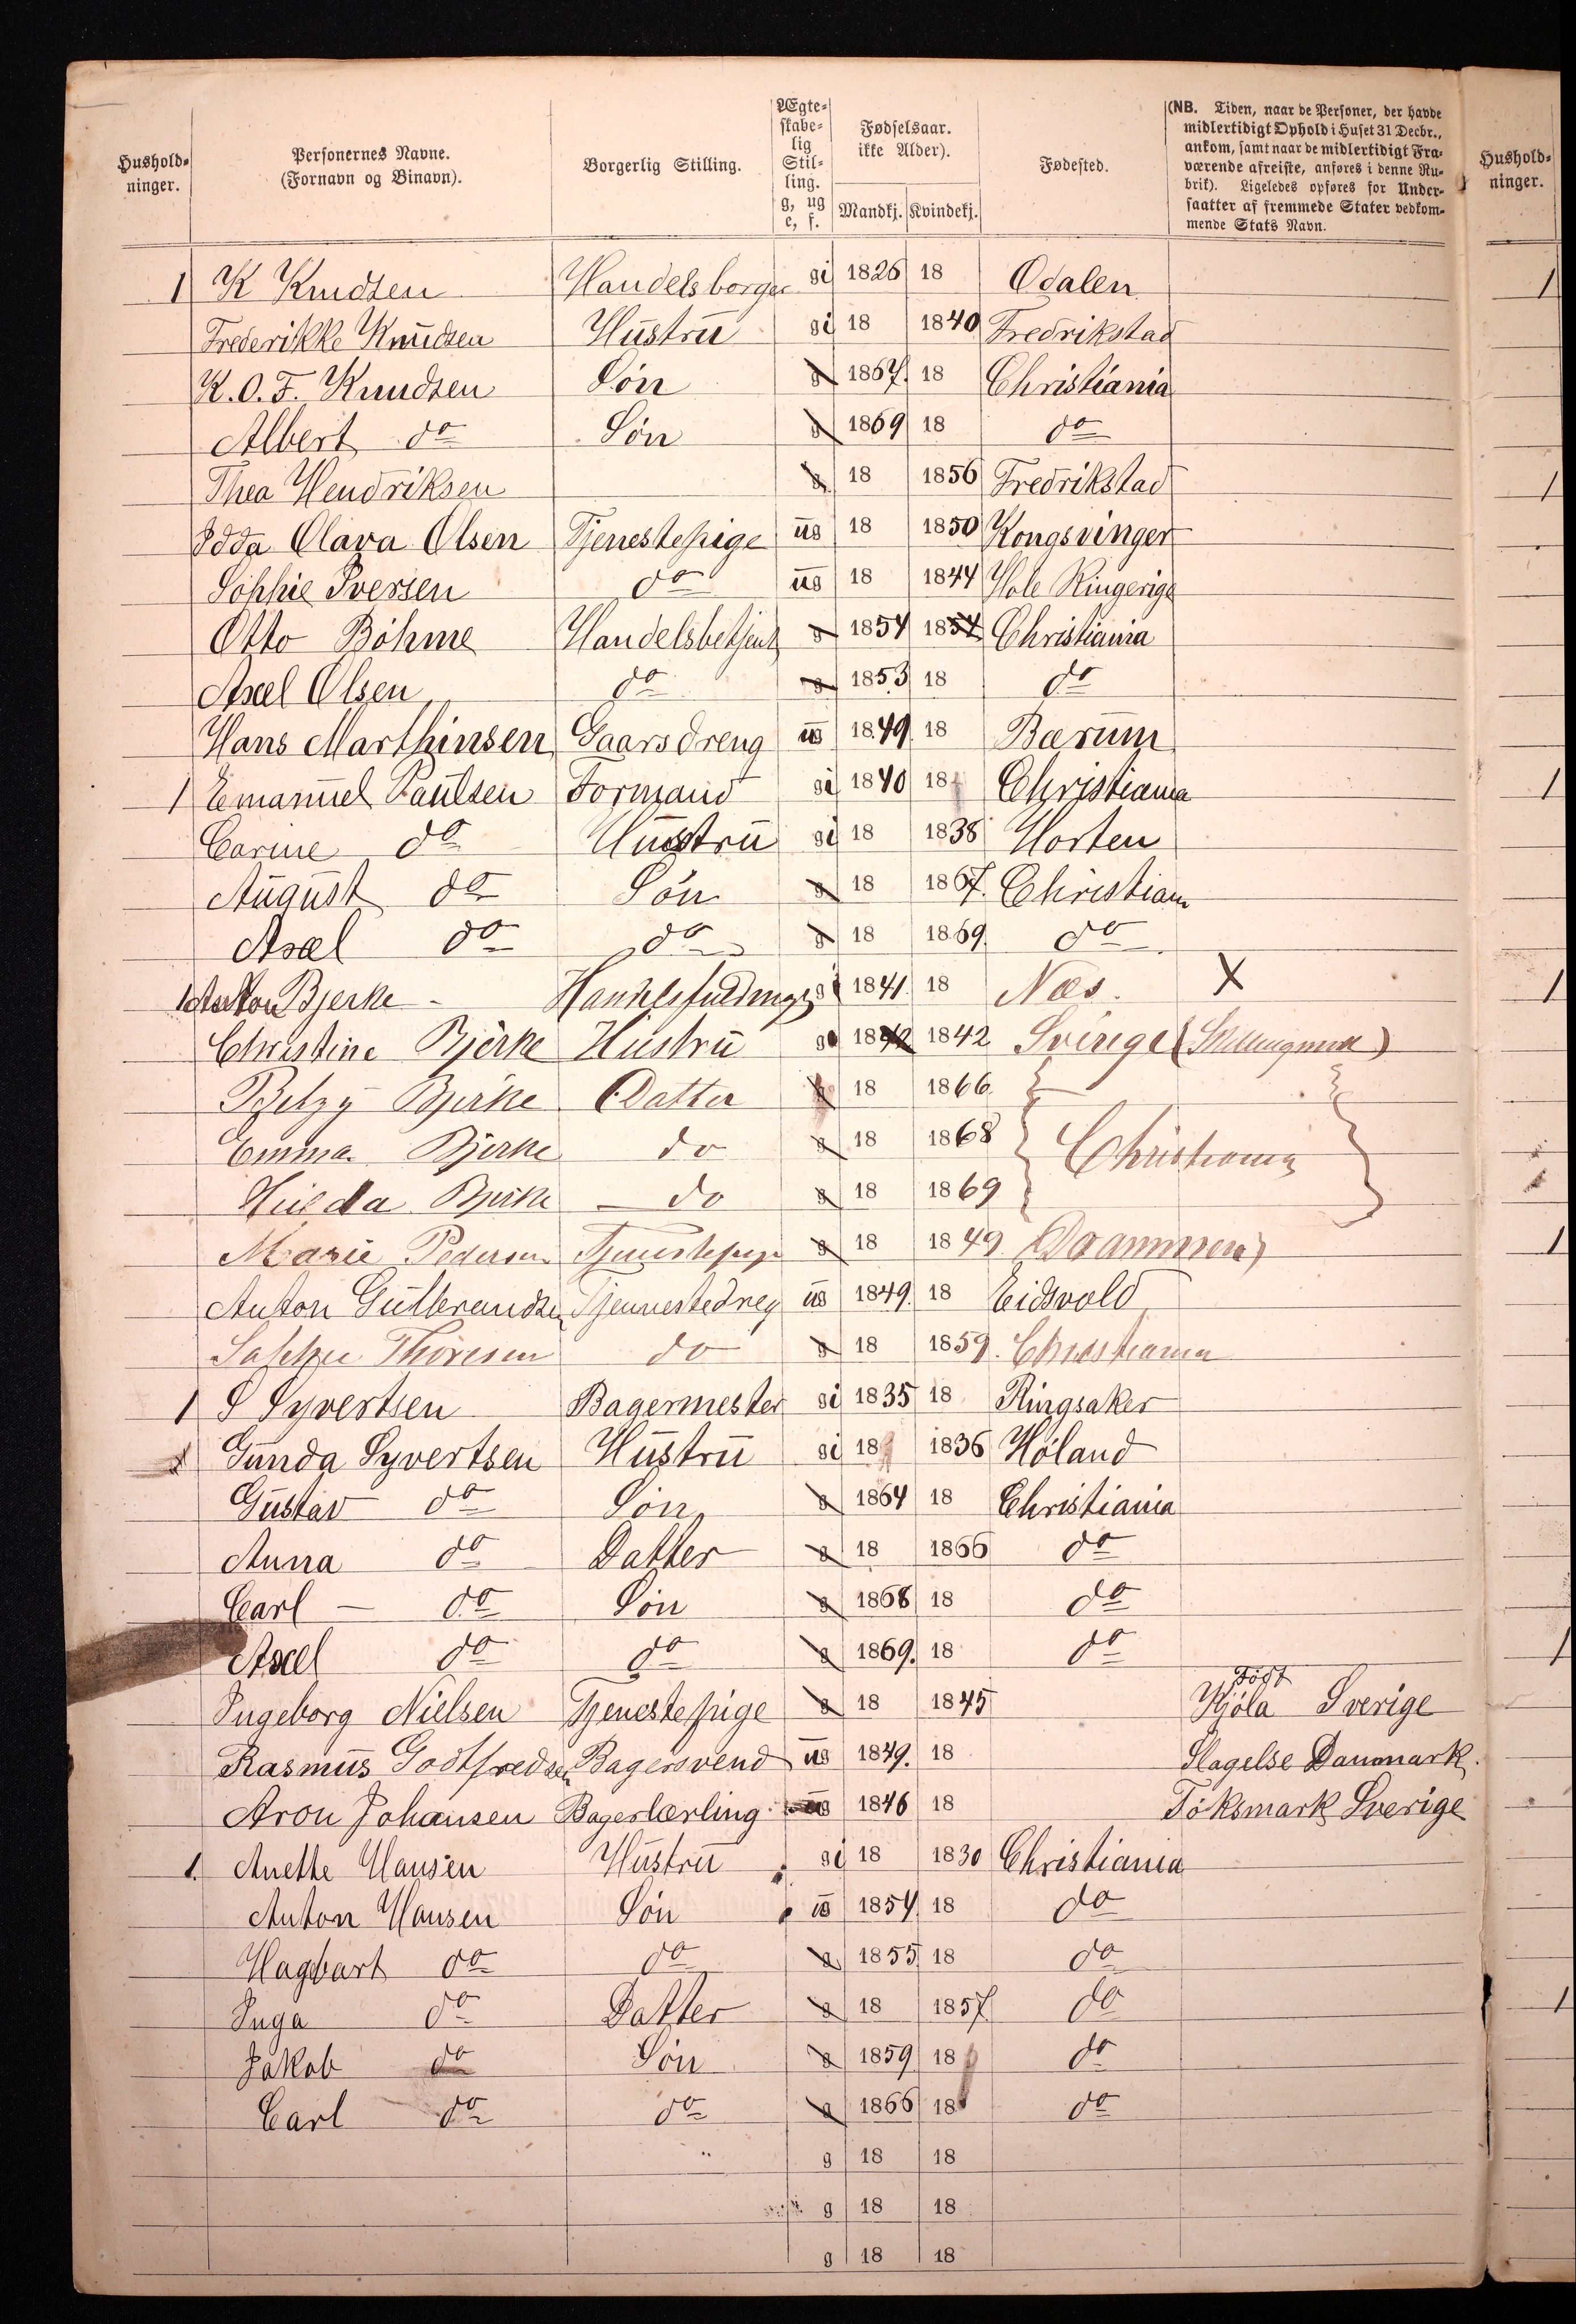 Hushold-
ninger.
Personernes Navne.
(Fornavn og Binavn).
Borgerlig Stilling.
Ægte-
skabe-
lig
Stil-
ling.
g, ug
e, f.
Fødselsaar.
ikke Alder).
Mandkj. Kvindekj.
Fødested.
(NB. Tiden, naar de Personer, der havde
midlertidigt Ophold i Huset 31 Decbr.,
ankom, samt naar de midlertidigt Fra-
værende afreiste, anføres i denne Ru-
brik). Ligeledes opføres for Under-
saatter af fremmede Stater vedkom-
mende Stats Navn.
Hushold-
ninger.
1 K Knudsen Handelsborger gi 1826 18 Odalen 1
Frederikke Knudsen Hustru gi 18 1840 Fredrikstad
K. O. F. Knudsen Søn g 1867. 18 Christiania
Albert do Søn g 1869 18 do
Thea Hendriksen g 18 1856 Fredrikstad 1
Idda Olava Olsen Tjenestepige ug 18 1850 Kongsvinger
Sophie Iversen do ug 18 1844 Hole Ringerige
Otto Böhme Handelsbetjent g 1854 1854 Christiania
Axel Olsen do g 1853 18 do
Hans Marthinsen Gaarsdreng ug 1849. 18 Bærum
1 Emanuel Paulsen Formand gi 1840 18 Christiania 1
Carine do Hustru gi 18 1838 Horten
August do Søn g 18 1867. Christian
Axel do do g 18 1869. do
1 Anton Bjerke - gi 1841 18 Næs. X 1
Christine Bjerke Hustru g 1842 1842 Sverige
Betzy Bjerke Datter g 18 1866
Emma Bjerke do g 18 1868 Christiania
Hilda Bjerke do g 18 1869
Marie Pedersen Tjenestepige g 18 1849 Drammen 1
Anton Gulbrandsen Tjennestedreg ug 1849. 18 Eidsvold
Sophie Thoresen do g 18 1859. Christiania
1 S Syvertsen Bagermester gi 1835 18 Ringsaker
1 Gunda Syvertsen Hustru gi 18 1836 Høland
Gustav do Søn g 1864 18 Christiania
Anna do Datter g 18 1866 do
Carl — do Søn g 1868 18 do
Axel do do g 1869. 18 do 1
Født
Ingeborg Nielsen Tjenestepige g 18 1845 Kjöla Sverige
Rasmus Godtfredsen Bagersvend ug 1849. 18 Slagelse Danmark.
Aron Johansen Bagerlærling ug 1846 18 Töksmark Sverige
1. Anette Hansen Hustru gi 18 1830 Christiania
Anton Hansen Søn ug 1854 18 do
Hagbart do do g 1855 18 do
Inga do Datter g 18 1857 do 1
Jakob do Søn g 1859 18 do
Carl do do g 1866 18 do
g 18 18
g 18 18
g 18 18